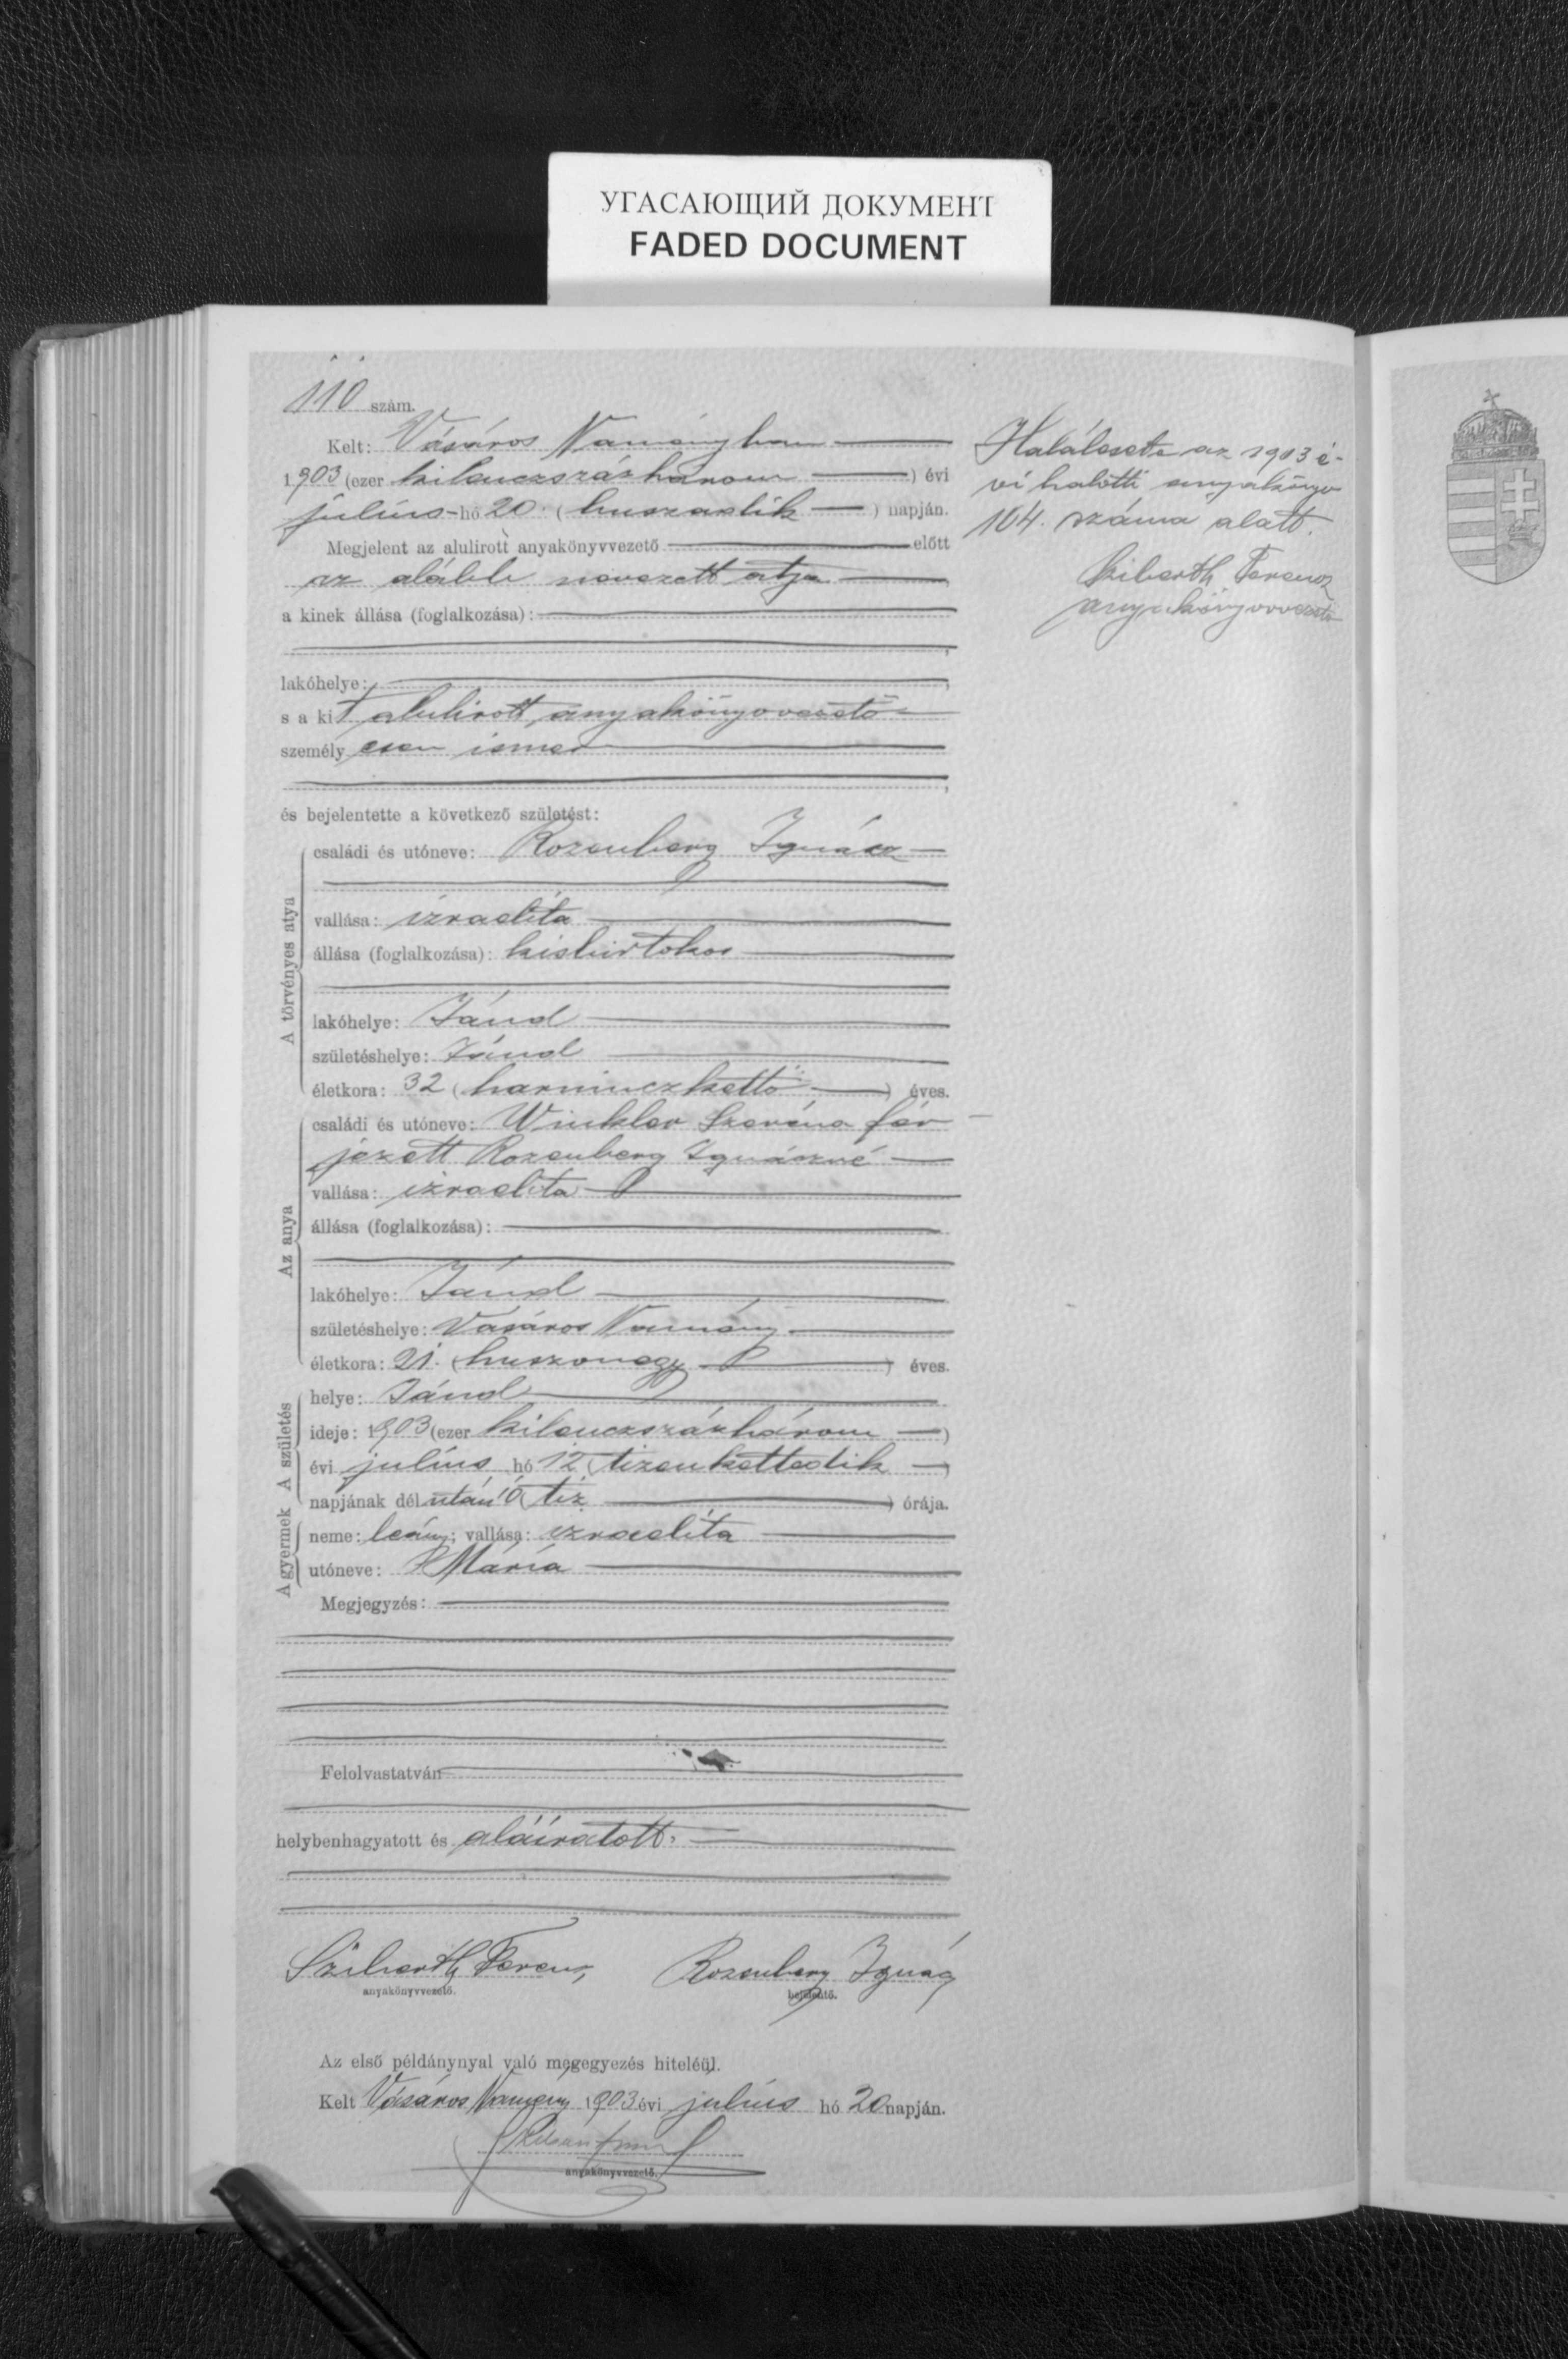 УГАСАЮЩИЙ ДОКУМЕНТ
FADED DOCUMENT
110 szám.
Kelt: Vásáros Naményban
1903 (ezer kilenczszázhárom) évi
július hó 20. (huszadik) napján.
Megjelent az alulirott anyakönyvvezető előtt
az alább nevezett atya
a kinek állása (foglalkozása):
lakóhelye:
s a kit alulirott anyakönyvvezető
személyesen ismer
és bejelentette a következő születést:
A törvényes atya
családi és utóneve: Rozenberg Ignácz
vallása: izraelita
állása (foglalkozása): kisbirtokos
lakóhelye: Jánd
születéshelye: Jánd
életkora: 32 (harminczkettő) éves.
Az anya
családi és utóneve: Winkler Szeréna fér
jezett Rozenberg Ignáczné
vallása: izraelita
állása (foglalkozása):
lakóhelye: Jánd
születéshelye: Vásáros Namény
életkora: 21. (huszonegy) éves.
A születés
helye: Jánd
ideje: 1903 (ezer kilenczszázhárom)
évi július hó 12 (tizenkettedik)
napjának dél után 10 (tiz) órája.
A gyermek
neme: leány; vallása: izraelita
utóneve: Mária
Megjegyzés:
Felolvastatván
helybenhagyatott és aláíratott.
Sziberth Ferencz Rozenberg Ignácz
anyakönyvvezető. bejelentő.
Az első példánynyal való megegyezés hiteléül.
Kelt Vásáros Namény 1903 évi július hó 20 napján.
anyakönyvvezető.
Halálesete az 1903 é-
vi halotti anyakönyv
104. száma alatt.
Sziberth Ferencz
anyakönyvvezető